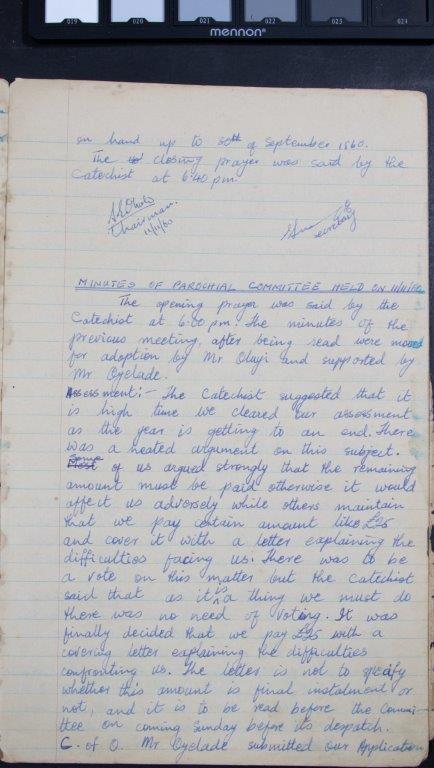 019 020 021 022 023 024
mennon
on hand up to 30th of September 1960.
The closing prayer was said by the
Catechist at 6.40 pm.
Chairman.
11/11/60
secretary
MINUTES OF PAROCHIAL COMMITTEE HELD ON 11/11/60
The opening prayer was said by the
Catechist at 6:00 pm. The minutes of the
previous meeting, after being read were moved
for adoption by Mr Olayi and supported by
Mr Oyelade.
Assessment:- The Catechist suggested that it
is high time we cleared our assessment
as the year is getting to an end. There
was a heated argument on this subject.
Some
of us argued strongly that the remaining
amount must be paid otherwise it would
affect us adversely while others maintain
that we pay certain amount like £25
and cover it with a letter explaining the
difficulties facing us. There was to be
a vote on this matter but the Catechist
said that as it is a thing we must do
there was no need of voting. It was
finally decided that we pay £25 with a
covering letter explaining the difficulties
confronting us. The letter is not to specify
whether this amount is final instalment or
not, and it is to be read before the Commi-
ttee on coming Sunday before its despatch.
C. of O. Mr Oyelade submitted our Application